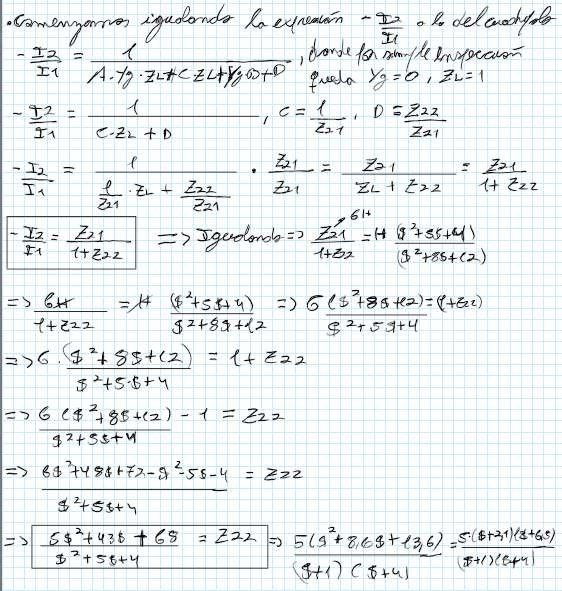 • Comenzamos igualando la expresión -I2/I1 a la del cuadripolo
-I2/I1 = 1/(A·Yg·ZL+C·ZL+Yg·B+D), donde por simple inspección queda Yg=0, ZL=1
-I2/I1 = 1/(C·ZL + D), C = 1/Z21, D = Z22/Z21
-I2/I1 = 1/(1/Z21·ZL + Z22/Z21) · Z21/Z21 = Z21/(ZL + Z22) = Z21/(1+Z22)
-I2/I1 = Z21/(1+Z22) => Igualando => Z21/(1+Z22) = H ($²+5$+4)/($²+8$+12)
6H
=> 6H/(1+Z22) = H ($²+5$+4)/($²+8$+12) => 6($²+8$+12)/($²+5$+4) = (1+Z22)
=> 6·($²+8$+12)/($²+5·$+4) = 1+Z22
=> 6($²+8$+12)/($²+5$+4) - 1 = Z22
=> (6$²+48$+72-$²-5$-4)/($²+5$+4) = Z22
=> (5$²+43$+68)/($²+5$+4) = Z22 => 5($²+8,6$+13,6)/(($+1)($+4)) = 5·($+2,1)($+6,5)/(($+1)($+4))